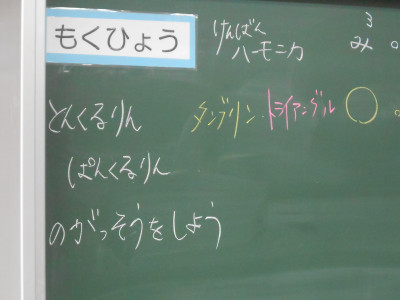 もくひょう
けんばん
ハーモニカ
3
み
とんくるりん
タンブリン.トライアングル
ぱんくるりん
のがっそうをしよう